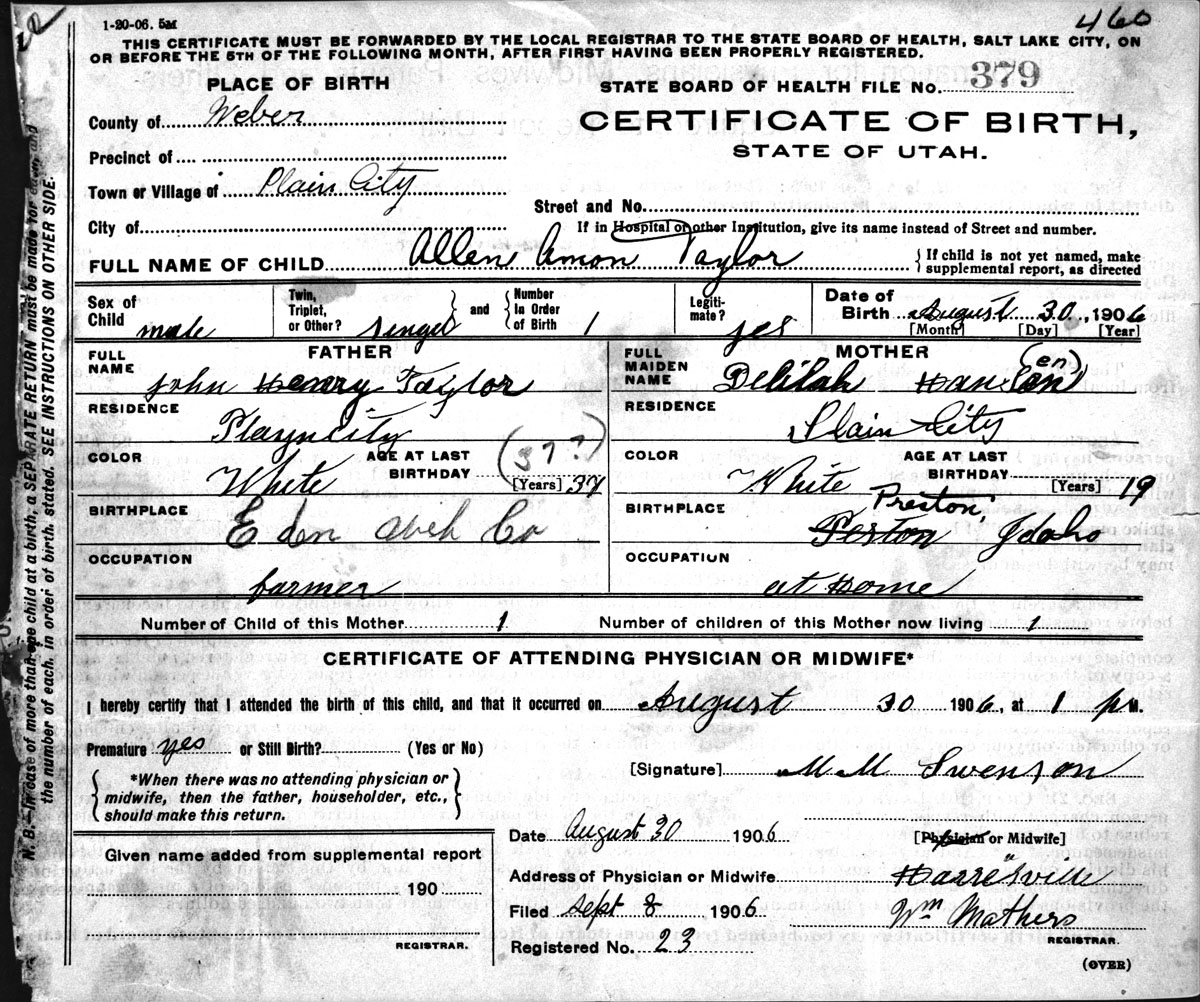 460
1-20-06. 5M
THIS CERTIFICATE MUST BE FORWARDED BY THE LOCAL REGISTRAR TO THE STATE BOARD OF HEALTH, SALT LAKE CITY, ON
OR BEFORE THE 5TH OF THE FOLLOWING MONTH, AFTER FIRST HAVING BEEN PROPERLY REGISTERED.
PLACE OF BIRTH
STATE BOARD OF HEALTH FILE NO. 379
County of Weber
CERTIFICATE OF BIRTH,
STATE OF UTAH.
Precinct of
Town or Village of Plain City
Street and No.
City of
If in Hospital or other Institution, give its name instead of Street and number.
FULL NAME OF CHILD Allen Amon Taylor
If child is not yet named, make
supplemental report, as directed
Sex of
Child male
Twin,
Triplet,
or Other? singel
and
Number
in Order
of Birth 1
Legiti-
mate? yes
Date of
Birth August 30, 1906
[Month] [Day] [Year]
FATHER
FULL
NAME John Henry Taylor
MOTHER
FULL
MAIDEN
NAME Delilah Hansen (en)
RESIDENCE
Playncity
RESIDENCE
Plain City
COLOR
White
AGE AT LAST
BIRTHDAY (37?)
[Years] 37
COLOR
White
AGE AT LAST
BIRTHDAY
[Years] 19
BIRTHPLACE
Eden Co
BIRTHPLACE
Preston,
Peston Idaho
OCCUPATION
farmer
OCCUPATION
at Home
Number of Child of this Mother 1
Number of children of this Mother now living 1
CERTIFICATE OF ATTENDING PHYSICIAN OR MIDWIFE*
I hereby certify that I attended the birth of this child, and that it occurred on August 30 1906, at 1 p M.
Premature yes or Still Birth? (Yes or No)
[Signature] M M Swenson
*When there was no attending physician or
midwife, then the father, householder, etc.,
should make this return.
Date August 30 1906
[Physician or Midwife]
Given name added from supplemental report
190
REGISTRAR.
Address of Physician or Midwife Harrisville
Filed Sept 8 1906
Wm Mathers
REGISTRAR.
Registered No. 23
(OVER)
N. B.—In case of more than one child at a birth, a SEPARATE RETURN must be made for each, and
the number of each, in order of birth, stated. SEE INSTRUCTIONS ON OTHER SIDE.